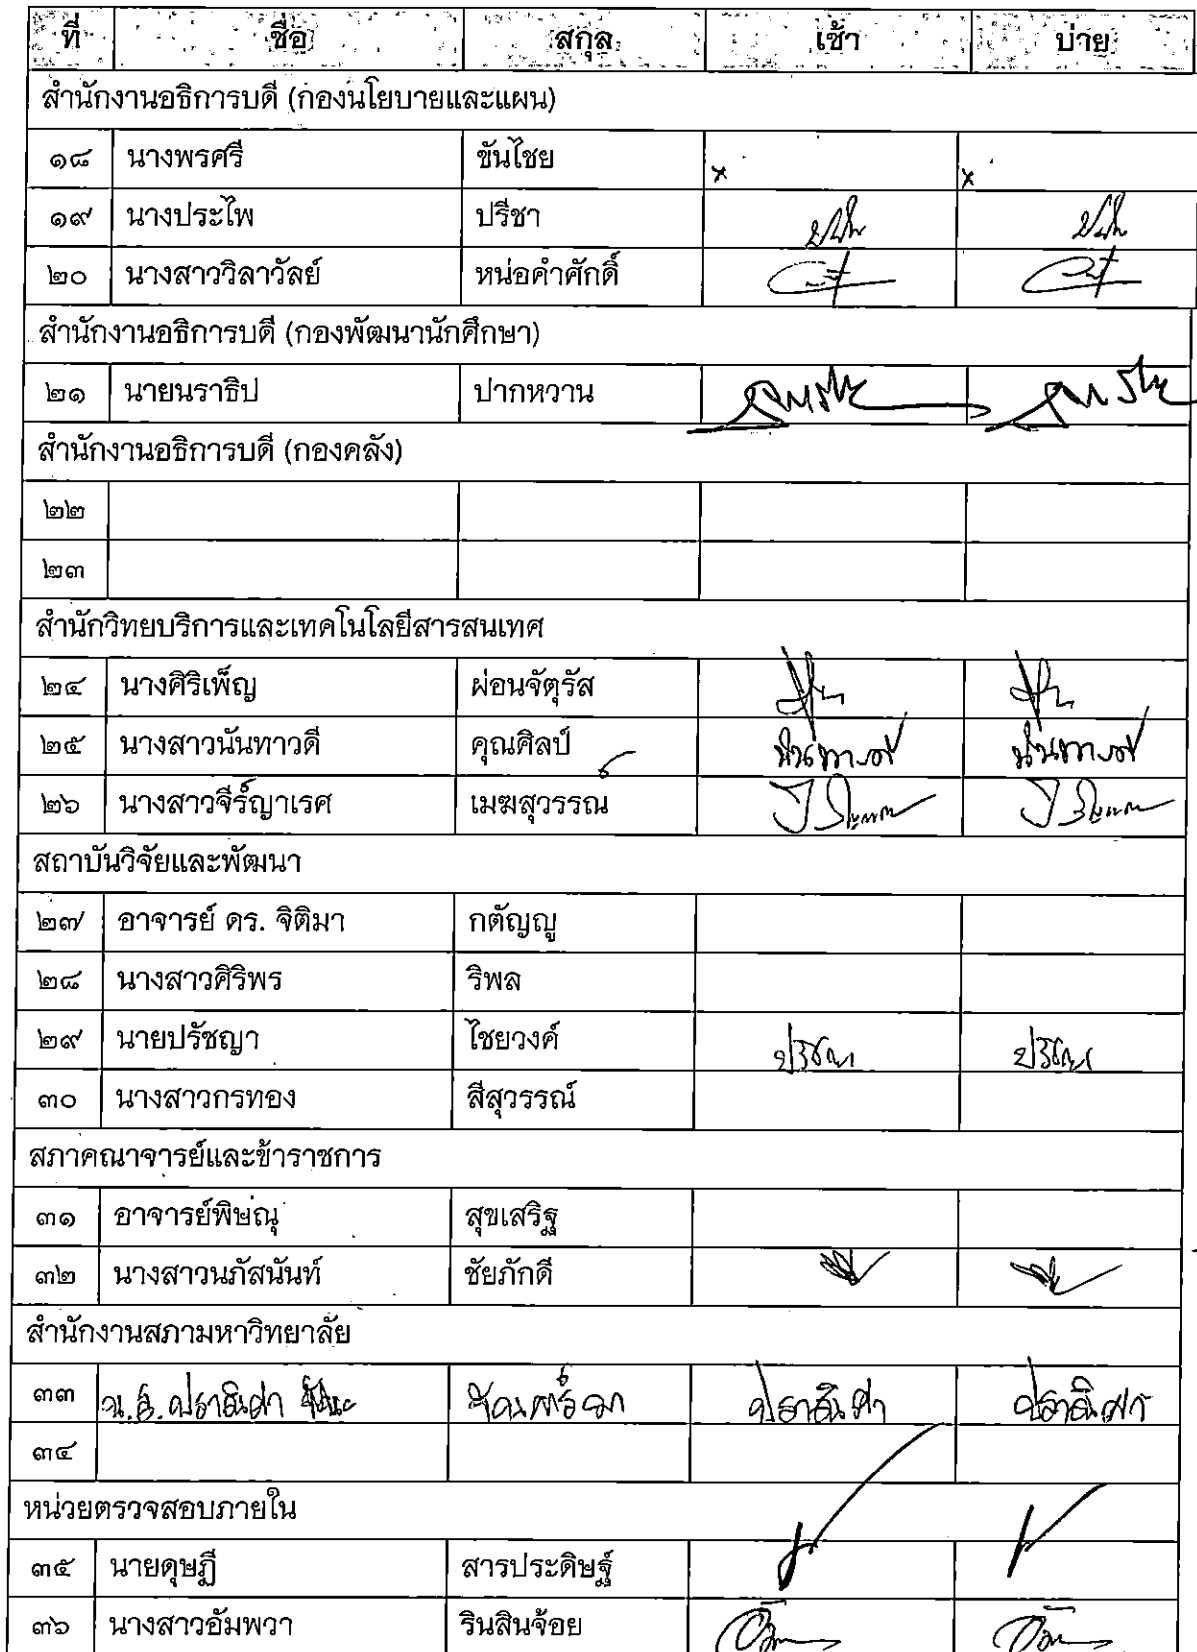 ที่ ชื่อ สกุล เช้า บ่าย
สำนักงานอธิการบดี (กองนโยบายและแผน)
๑๘ นางพรศรี ขันไชย x x
๑๙ นางประไพ ปรีชา
๒๐ นางสาววิลาวัลย์ หน่อคำศักดิ์
สำนักงานอธิการบดี (กองพัฒนานักศึกษา)
๒๑ นายนราธิป ปากหวาน
สำนักงานอธิการบดี (กองคลัง)
๒๒
๒๓
สำนักวิทยบริการและเทคโนโลยีสารสนเทศ
๒๔ นางศิริเพ็ญ ผ่อนจัตุรัส
๒๕ นางสาวนันทาวดี คุณศิลป์ นันทาวดี นันทาวดี
๒๖ นางสาวจีร์ญาเรศ เมฆสุวรรณ
สถาบันวิจัยและพัฒนา
๒๗ อาจารย์ ดร. จิติมา กตัญญู
๒๘ นางสาวศิริพร ริพล
๒๙ นายปรัชญา ไชยวงค์ ปรัชญา ปรัชญา
๓๐ นางสาวกรทอง สีสุวรรณ์
สภาคณาจารย์และข้าราชการ
๓๑ อาจารย์พิษณุ สุขเสริฐ
๓๒ นางสาวนภัสนันท์ ชัยภักดี
สำนักงานสภามหาวิทยาลัย
๓๓ น.ส. ปราณิศา ปราณิศา ปราณิศา
๓๔
หน่วยตรวจสอบภายใน
๓๕ นายดุษฎี สารประดิษฐ์
๓๖ นางสาวอัมพวา รินสินจ้อย